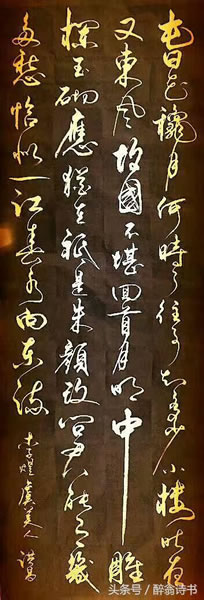 春花秋月何時了往事知多少小樓昨夜
又東風故國不堪回首月明中雕
欄玉砌應猶在祗是朱顏改問君能有幾
多愁恰似一江春水向東流 李煜虞美人
头条号 / 醉翁诗书